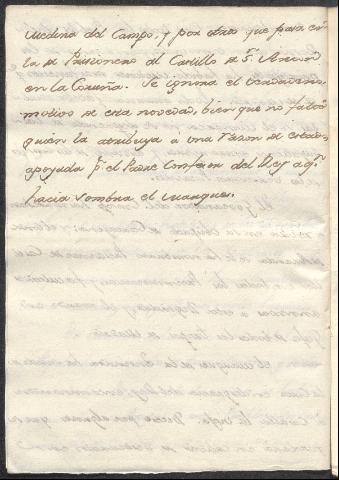 Medina del Campo, y por otro que pasa en
la de Prisionero al Castillo de Sn. Anton
en la Coruña. Se ignora el verdadero
motivo de esta novedad, bien que no falta
quien la atribuya a una razon de estado
apoyada pr. el Padre Confesor del Rey a qn.
hacia sombra el Marques.